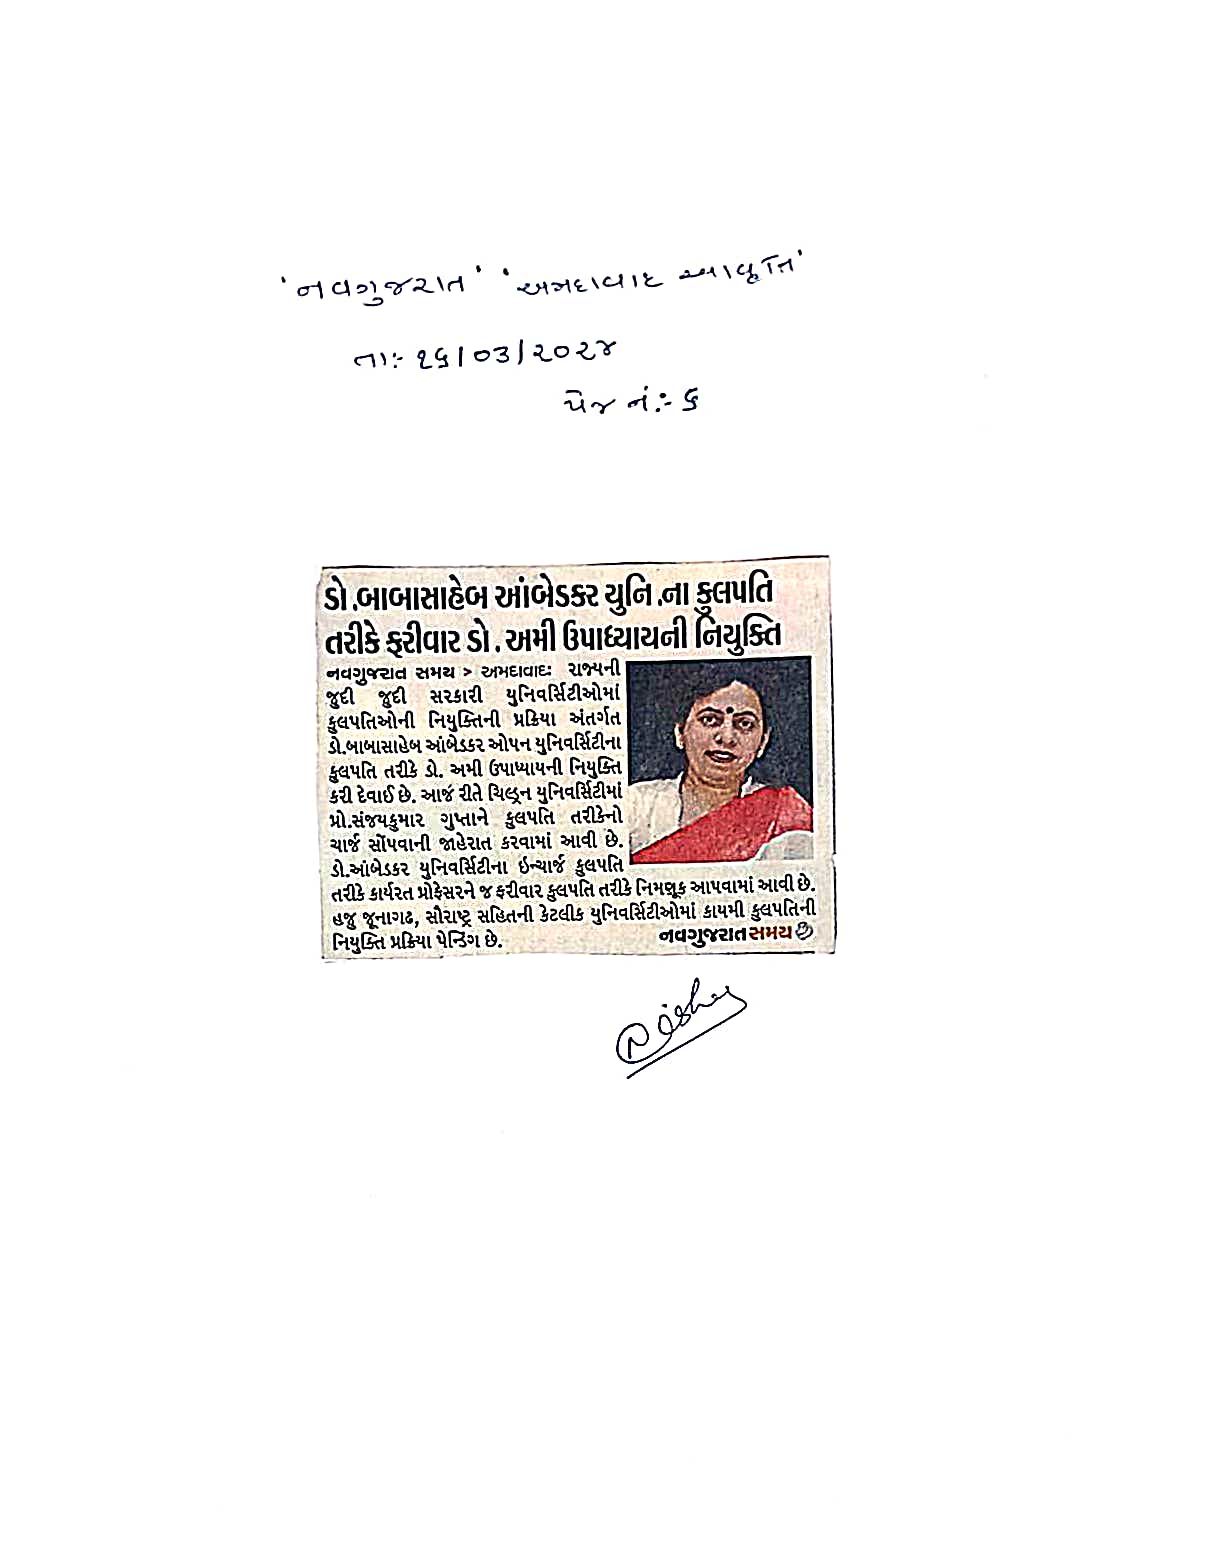 'નવગુજરાત' 'અમદાવાદ આવૃત્તિ'
તા:- ૧૬/૦૩/૨૦૨૪
પેજ નં:- ૬
ડો.બાબાસાહેબ આંબેડકર યુનિ.ના કુલપતિ
તરીકે ફરીવાર ડો. અમી ઉપાધ્યાયની નિયુક્તિ
નવગુજરાત સમય > અમદાવાદઃ રાજ્યની
જુદી જુદી સરકારી યુનિવર્સિટીઓમાં
કુલપતિઓની નિયુક્તિની પ્રક્રિયા અંતર્ગત
ડો.બાબાસાહેબ આંબેડકર ઓપન યુનિવર્સિટીના
કુલપતિ તરીકે ડો. અમી ઉપાધ્યાયની નિયુક્તિ
કરી દેવાઈ છે. આજ રીતે ચિલ્ડ્રન યુનિવર્સિટીમાં
પ્રો.સંજયકુમાર ગુપ્તાને કુલપતિ તરીકેનો
ચાર્જ સોંપવાની જાહેરાત કરવામાં આવી છે.
ડો.આંબેડકર યુનિવર્સિટીના ઇન્ચાર્જ કુલપતિ
તરીકે કાર્યરત પ્રોફેસરને જ ફરીવાર કુલપતિ તરીકે નિમણૂક આપવામાં આવી છે.
હજુ જૂનાગઢ, સૌરાષ્ટ્ર સહિતની કેટલીક યુનિવર્સિટીઓમાં કાયમી કુલપતિની
નિયુક્તિ પ્રક્રિયા પેન્ડિંગ છે.
નવગુજરાત સમય